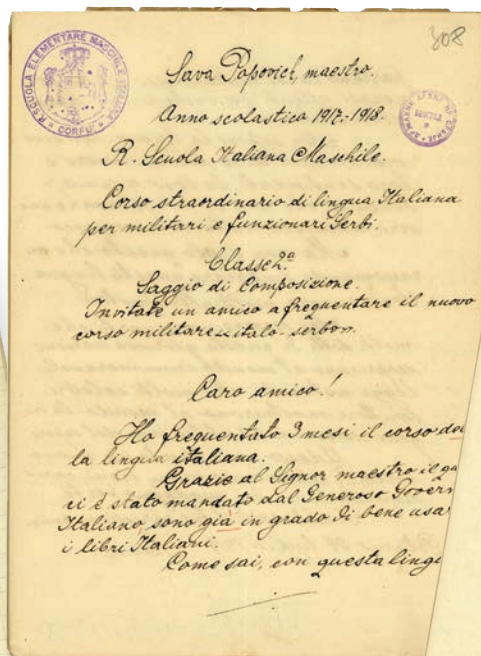 308
R. SCUOLA ELEMENTARE MASCHILE ITALIANA
CORFU
Sava Popovich, maestro.
Anno scolastico 1917.-1918.
R. Scuola Italiana Maschile.
Corso straordinario di lingua Italiana
per militari e funzionari Serbi.
Classe 2ª
Saggio di Composizione.
Invitate un amico a frequentare il nuovo
corso militare „italo-serbo”.
Caro amico!
Ho frequentato 3 mesi il corso del
la lingua italiana.
Grazie al Signor maestro il
ci è stato mandato dal Generoso Govern
Italiano, sono già in grado di bene usar
i libri Italiani.
Come sai, con questa lingu